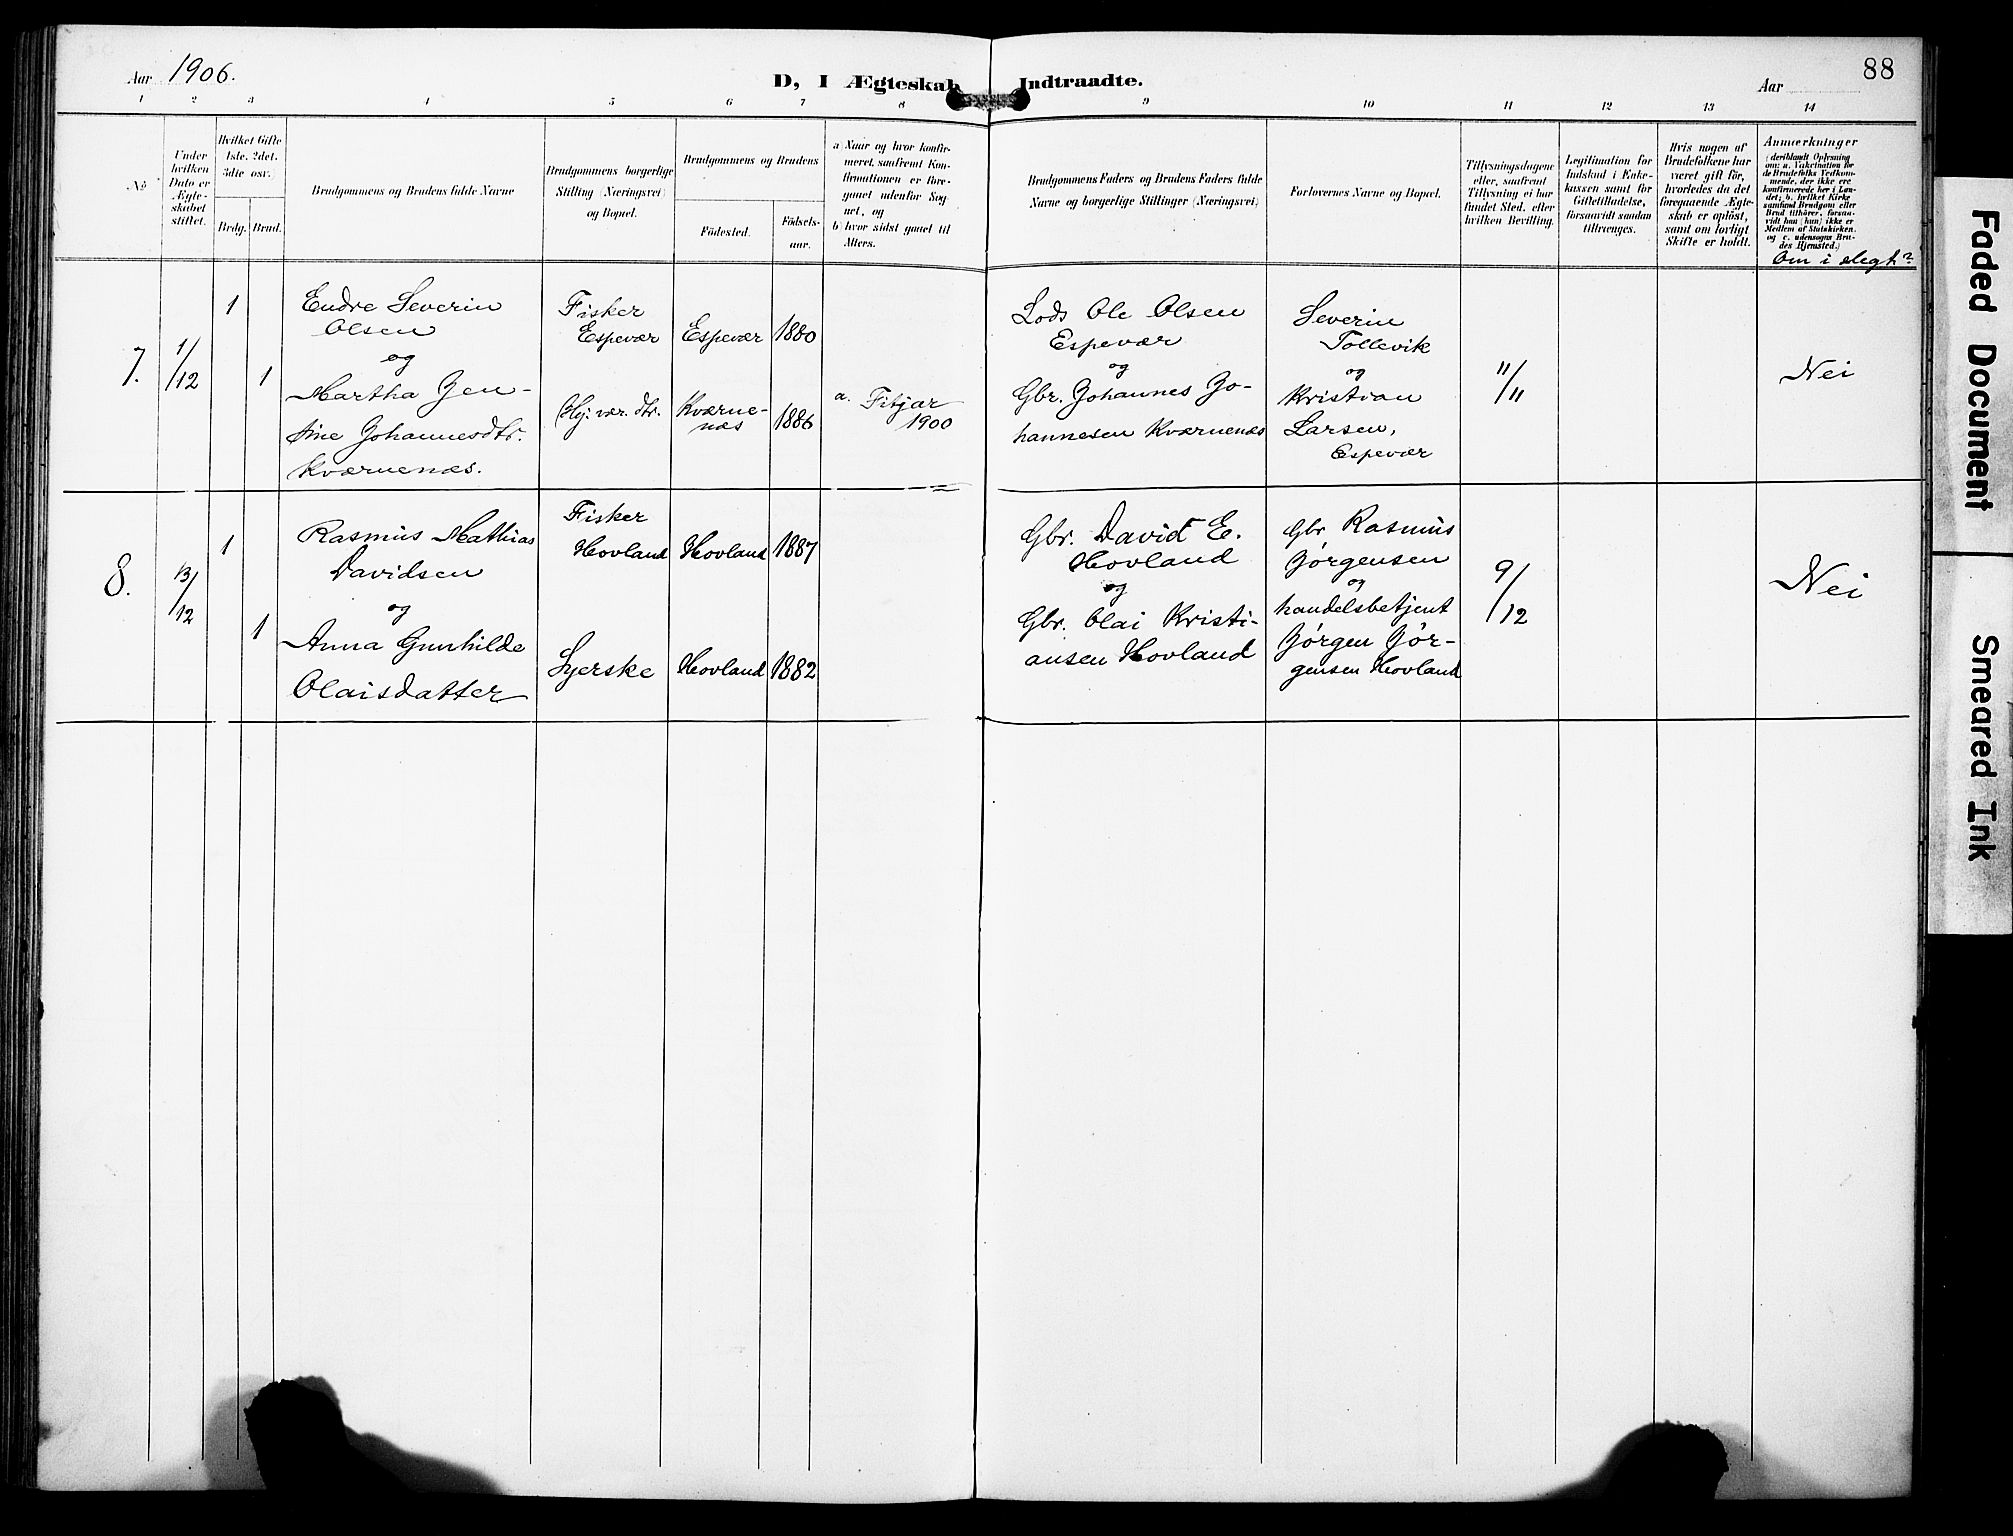 Aar 1906.
D, I Ægteskab Indtraadte.
Aar
88
1 2 3 4 5 6 7 8 9 10 11 12 13 14
No
Under hvilken Dato er Ægteskabet stiftet.
Hvilket Gifte 1ste, 2det, 3die osv.
Brdg. Brud.
Brudgommens og Brudens fulde Navne
Brudgommens borgerlige Stilling (Næringsvei) og Bopæl.
Brudgommens og Brudens
Födested.
Födsels-aar.
a) Naar og hvor konfirmeret, saafremt Konfirmationen er foregaaet udenfor Sognet, og
b) hvor sidst gaaet til Alters.
Brudgommens Faders og Brudens Faders fulde Navne og borgerlige Stillinger (Næringsvei)
Forlovernes Navne og Bopæl.
Tillysningsdagene eller, saafremt Tillysning ei har fundet Sted, efter hvilken Bevilling.
Legitimation for Indskud i Enkekassen samt for Giftetilladelse, forsaavidt saadan tiltrænges.
Hvis nogen af Brudefolkene har været gift för, hvorledes da det foregaaende Ægteskab er oplöst, samt om lovligt Skifte er holdt.
Anmærkninger
(deriblandt Oplysning om: a. Vakcination for de Brudefolks Vedkommende, der ikke ere konfirmerede her i Landet; b. hvilket Kirkesamfund Brudgom eller Brud tilhörer, forsaavidt han (hun) ikke er Medlem af Statskirken, og c. udensogns Brudes Hjemsted.)
Om i slegt?
7.
1/12
1
1
Endre Severin
Olsen
og
Martha Jen-
sine Johannesdtr.
Kværnenæs.
Fisker
Espevær
Gbr. dtr.
Espevær
Kværne-
næs
1880
1886
a. Fitjar
1900
Lods Ole Olsen
Espevær
og
Gbr. Johannes Jo-
hannesen Kværnenæs
Severin
Tollevik
og
Kristian
Larsen,
Espevær
11/11
Nei
8.
13/12
1
1
Rasmus Mathias
Davidsen
og
Anna Gunhilde
Olaisdatter
Fisker
Hovland
Syerske
Hovland
Hovland
1887
1882
Gbr. David E.
Hovland
og
Gbr. Olai Kristi-
ansen Hovland
Gbr Rasmus
Jørgensen
og
handelsbetjent
Jørgen Jör-
gensen Hovland
9/12
Nei
Faded Document
Smeared Ink